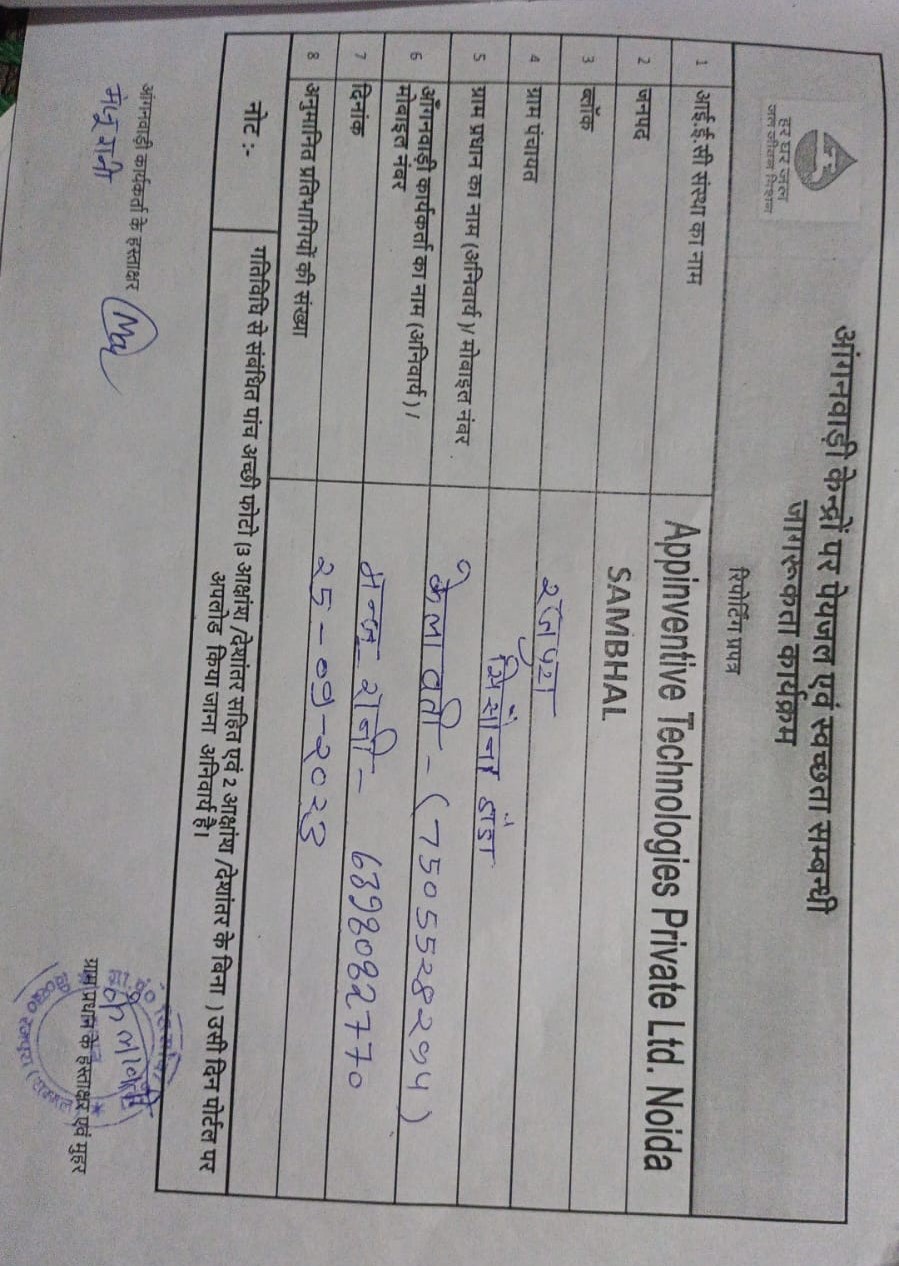 हर घर जल
जल जीवन मिशन
आंगनवाड़ी केन्द्रों पर पेयजल एवं स्वच्छता सम्बन्धी
जागरूकता कार्यक्रम
रिपोर्टिंग प्रपत्र
1 आई.ई.सी संस्था का नाम Appinventive Technologies Private Ltd. Noida
2 जनपद SAMBHAL
3 ब्लॉक रजपुरा
4 ग्राम पंचायत
5 ग्राम प्रधान का नाम (अनिवार्य )/ मोबाइल नंबर केलावती - (7505528294)
6 आँगनवाड़ी कार्यकर्ता का नाम (अनिवार्य ) /
मोबाइल नंबर मन्जू रानी - 6398082770
7 दिनांक २5-०9-२०२३
8 अनुमानित प्रतिभागियों की संख्या
नोट :- गतिविधि से संबंधित पांच अच्छी फोटो (3 आक्षांश /देशांतर सहित एवं 2 आक्षांश /देशांतर के बिना ) उसी दिन पोर्टल पर
अपलोड किया जाना अनिवार्य है।
आंगनवाड़ी कार्यकर्ता के हस्ताक्षर
ग्राम प्रधान के हस्ताक्षर एवं मुहर